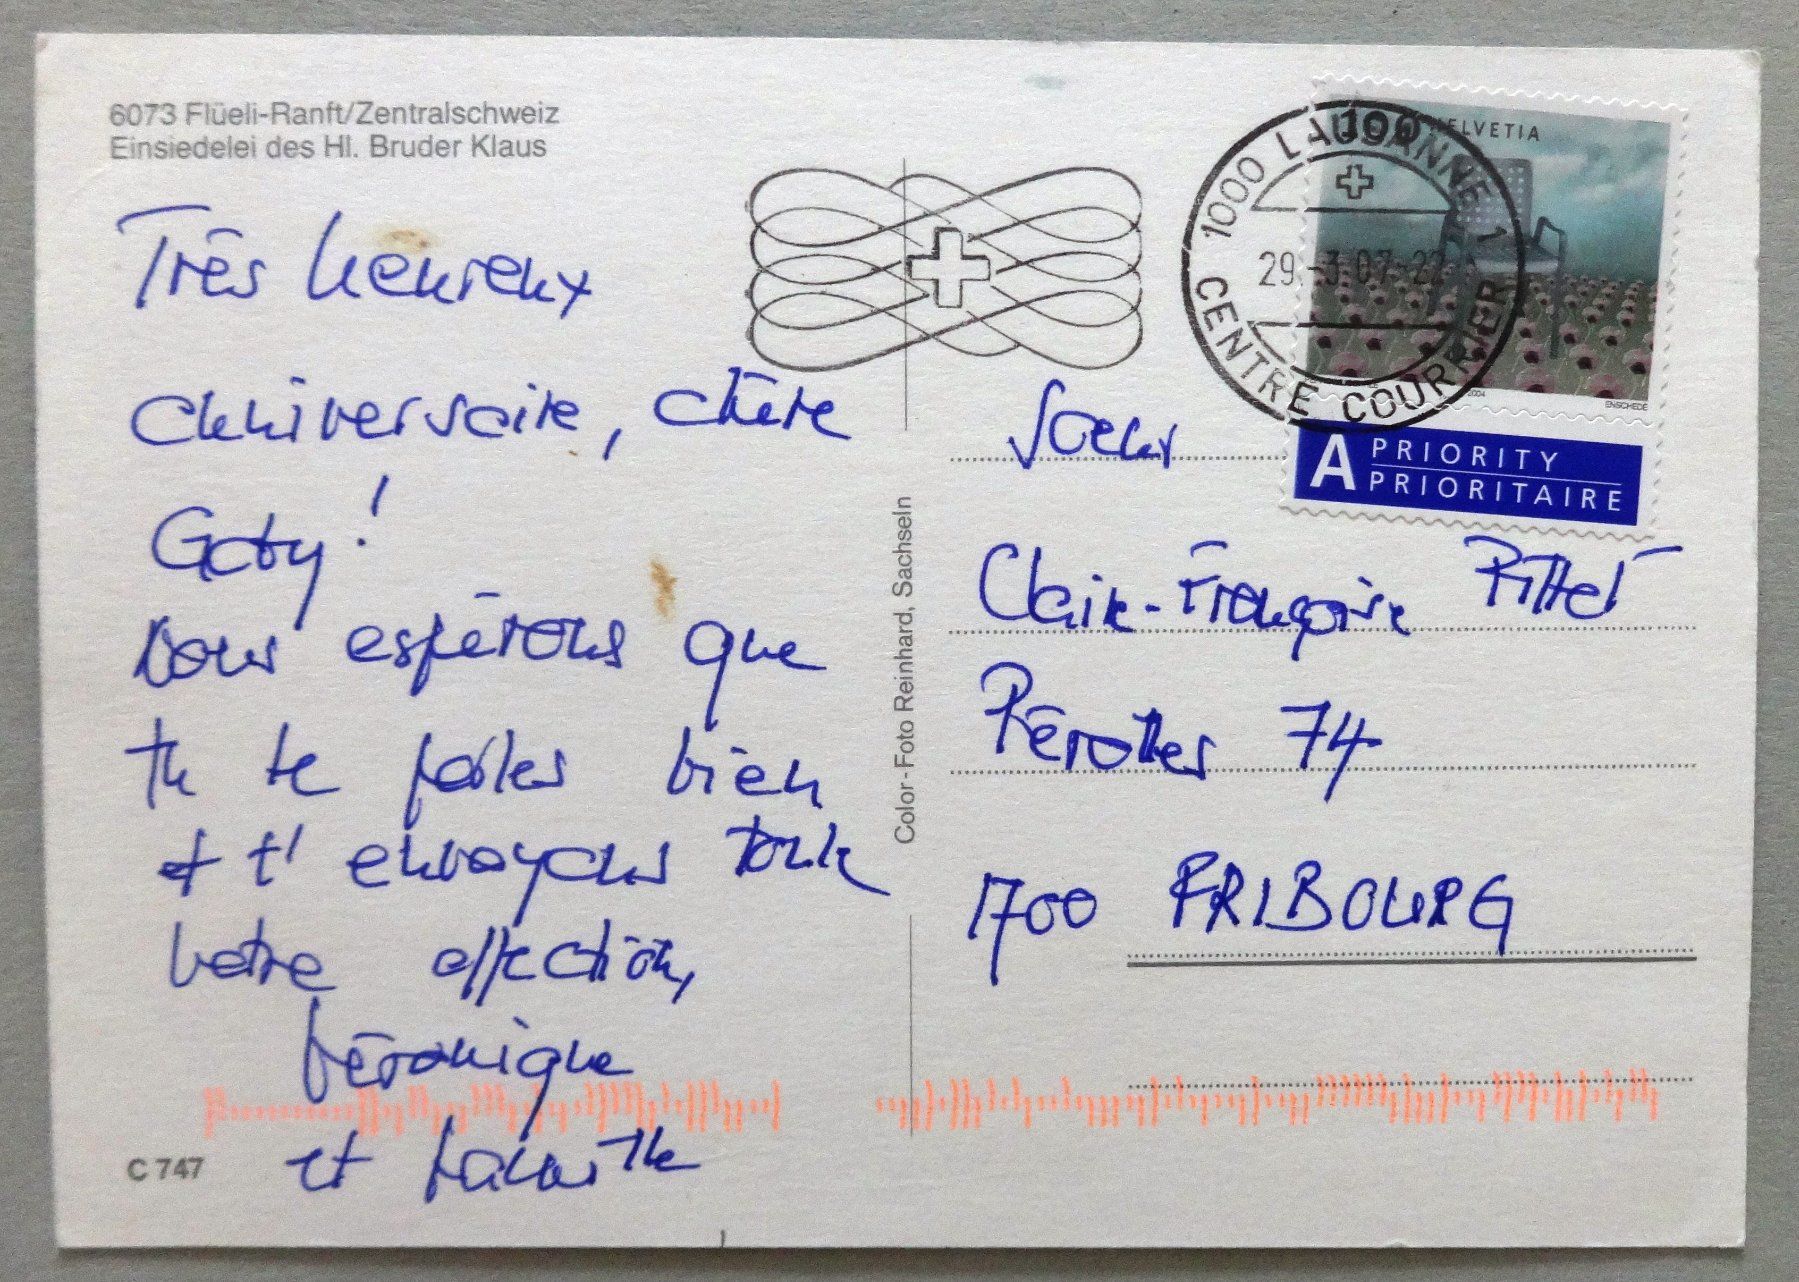 6073 Flüeli-Ranft/Zentralschweiz
Einsiedelei des Hl. Bruder Klaus
Très heureux
anniversaire, chère
Gaby!
Nous espérons que
tu te portes bien
et t'envoyons toute
notre affection,
Véronique
et
C 747
Color-Foto Reinhard, Sachseln
1000 LAUSANNE 1
29.-3.07-22
CENTRE COURRIER
100 HELVETIA
2004
ENSCHEDE
A PRIORITY
PRIORITAIRE
Soeur
Claire-Françoise Pittet
Pérolles 74
1700 FRIBOURG